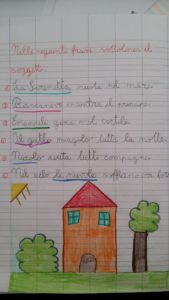 Nelle seguenti frasi sottolinea il
soggetto.
La Sirenetta nuota nel mare.
incontra il principe.
gioca nel cortile.
Il gatto miagola tutta la notte.
Nicolò aiuta tutti i compagni.
Nel cielo le nuvole